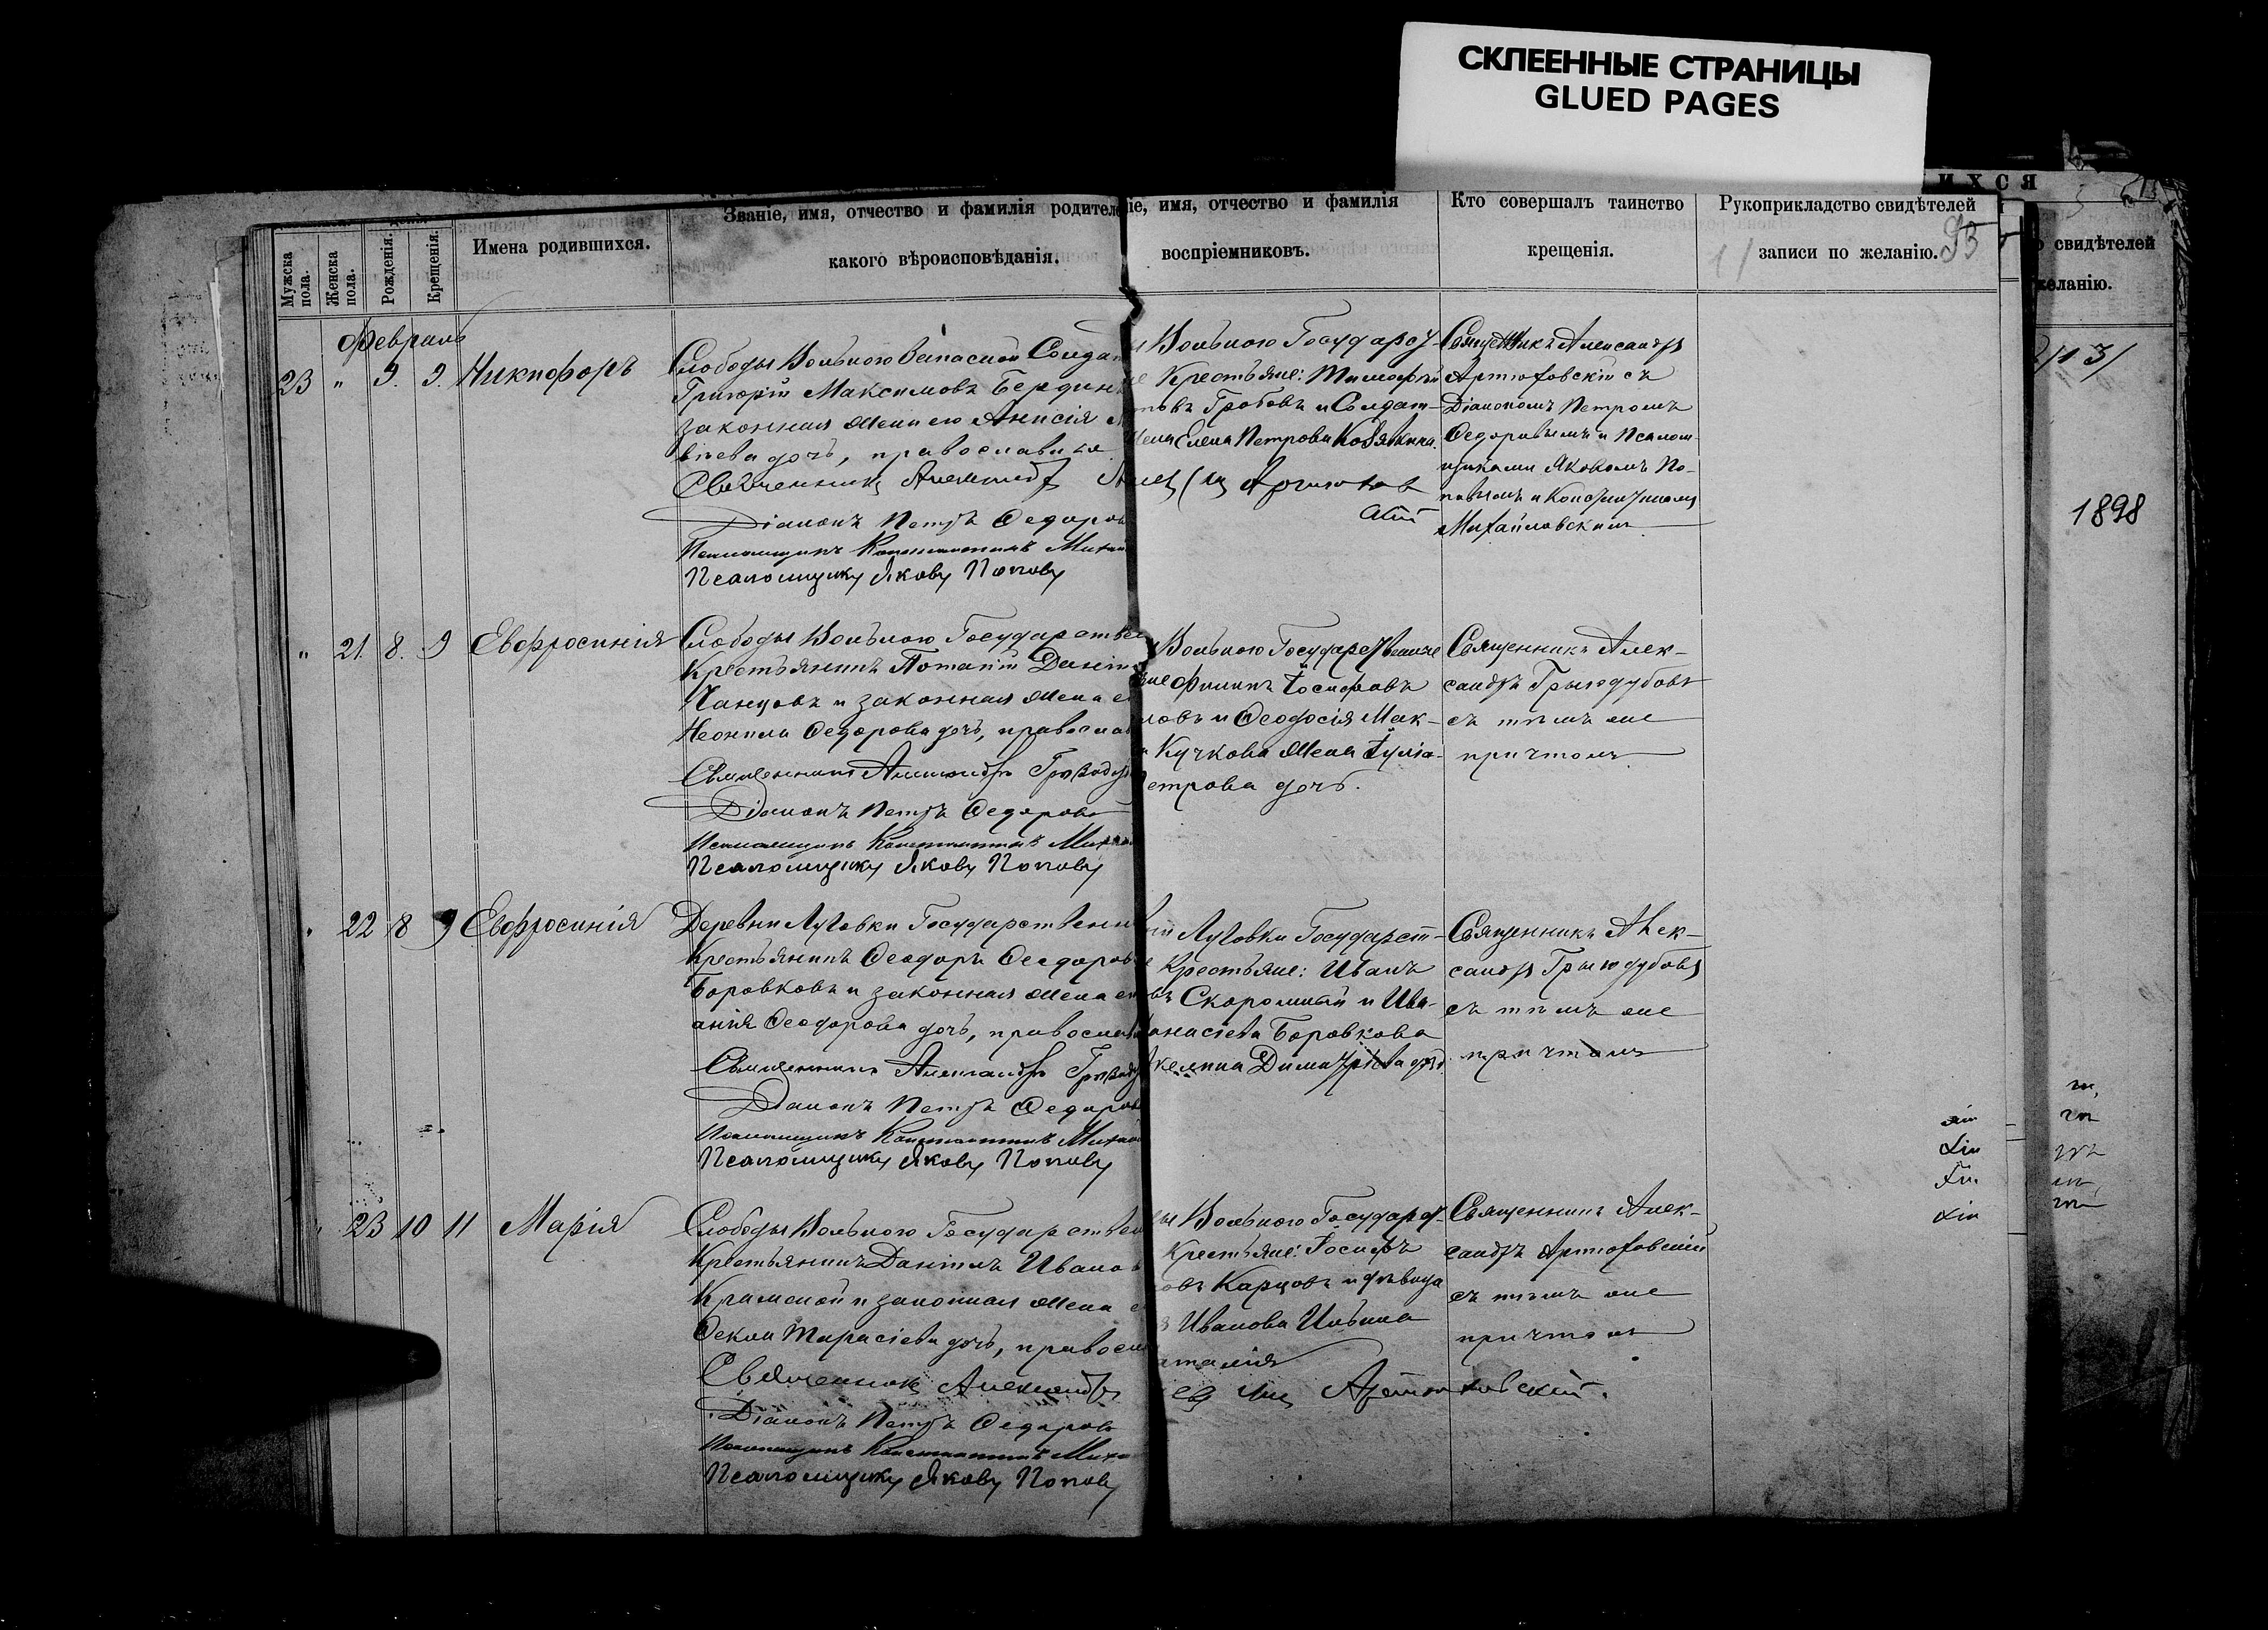 СКЛЕЕННЫЕ СТРАНИЦЫ
GLUED PAGES
ИХСЯ
Мужска пола.
Женска пола.
Рожденія.
Крещенія.
Имена родившихся.
Званіе, имя, отчество и фамилія родител
какого вѣроисповѣданія.
іе, имя, отчество и фамилія
воспріемниковъ.
Кто совершалъ таинство
крещенія.
Рукоприкладство свидѣтелей
записи по желанію. 93
свидѣтелей
желанію.
Февраль
23 " 9. 9. Никифоръ
Слободы Вольного Запасной Солдат
Григорій Максимовъ Бердин
законная жена его Анисія
віева дочь, православные
Священникъ Александр
Діаконъ Петръ Федоров
Псаломщикъ Константинъ Михай
Псаломщикъ Яковъ Поповъ
Вольного Государст-
Крестьяне: Тимофей
Гробовъ и Солдат-
жена Елена Петрова Кобявкина.
Священникъ Александръ
Артюховскій съ
Діакономъ Петромъ
Федоровымъ и Псалом-
щиками Яковомъ По-
повымъ и Константиномъ
Михайловскимъ
1898
" 21. 8. 9 Евфросинія
Слободы Вольного Государствен
Крестьянинъ Потапій Даніи
Панцовъ и законная жена е
Неонила Федорова дочь, православ
Священникъ Александръ
Діаконъ Петръ Федоровъ
Псаломщикъ Константинъ Михай
Псаломщикъ Яковъ Поповъ
Вольного Государственные
Филипъ Іосифовъ
и Феодосія Мак-
Кучкова жена Іуліа-
етрова дочь.
Священникъ Алек-
сандръ
съ тѣмъ же
причтомъ
" 22 8 9 Евфросинія
Деревни Луговки Государственн
Крестьянинъ Феодоръ Феодоров
Боровковъ и законная жена е
анія Феодорова дочь, православ
Священникъ Александръ
Діаконъ Петръ Федоров
Псаломщикъ Константинъ Михай
Псаломщикъ Яковъ Поповъ
Луговки Государст-
Крестьяне: Иванъ
въ Скоромный и Ива-
анасіева Боровкова
Димитріева дочь
Священникъ Алек-
сандръ
съ тѣмъ же
причтомъ
" 23 10 11 Марія
Слободы Вольного Государствен
Крестьянинъ Даніилъ Иванов
и законная жена е
Фекла Тарасіева дочь, правосл
Священникъ Александръ
Діаконъ Петръ Федоровъ
Псаломщикъ Константинъ Михай
Псаломщикъ Яковъ Поповъ
Вольного Государст-
Крестьяне: Іосифъ
овъ Карцовъ и дѣвица
Иванова Ильина
аталія
Артюховскій.
Священникъ Алек-
сандръ Артюховскій
съ тѣмъ же
причтомъ